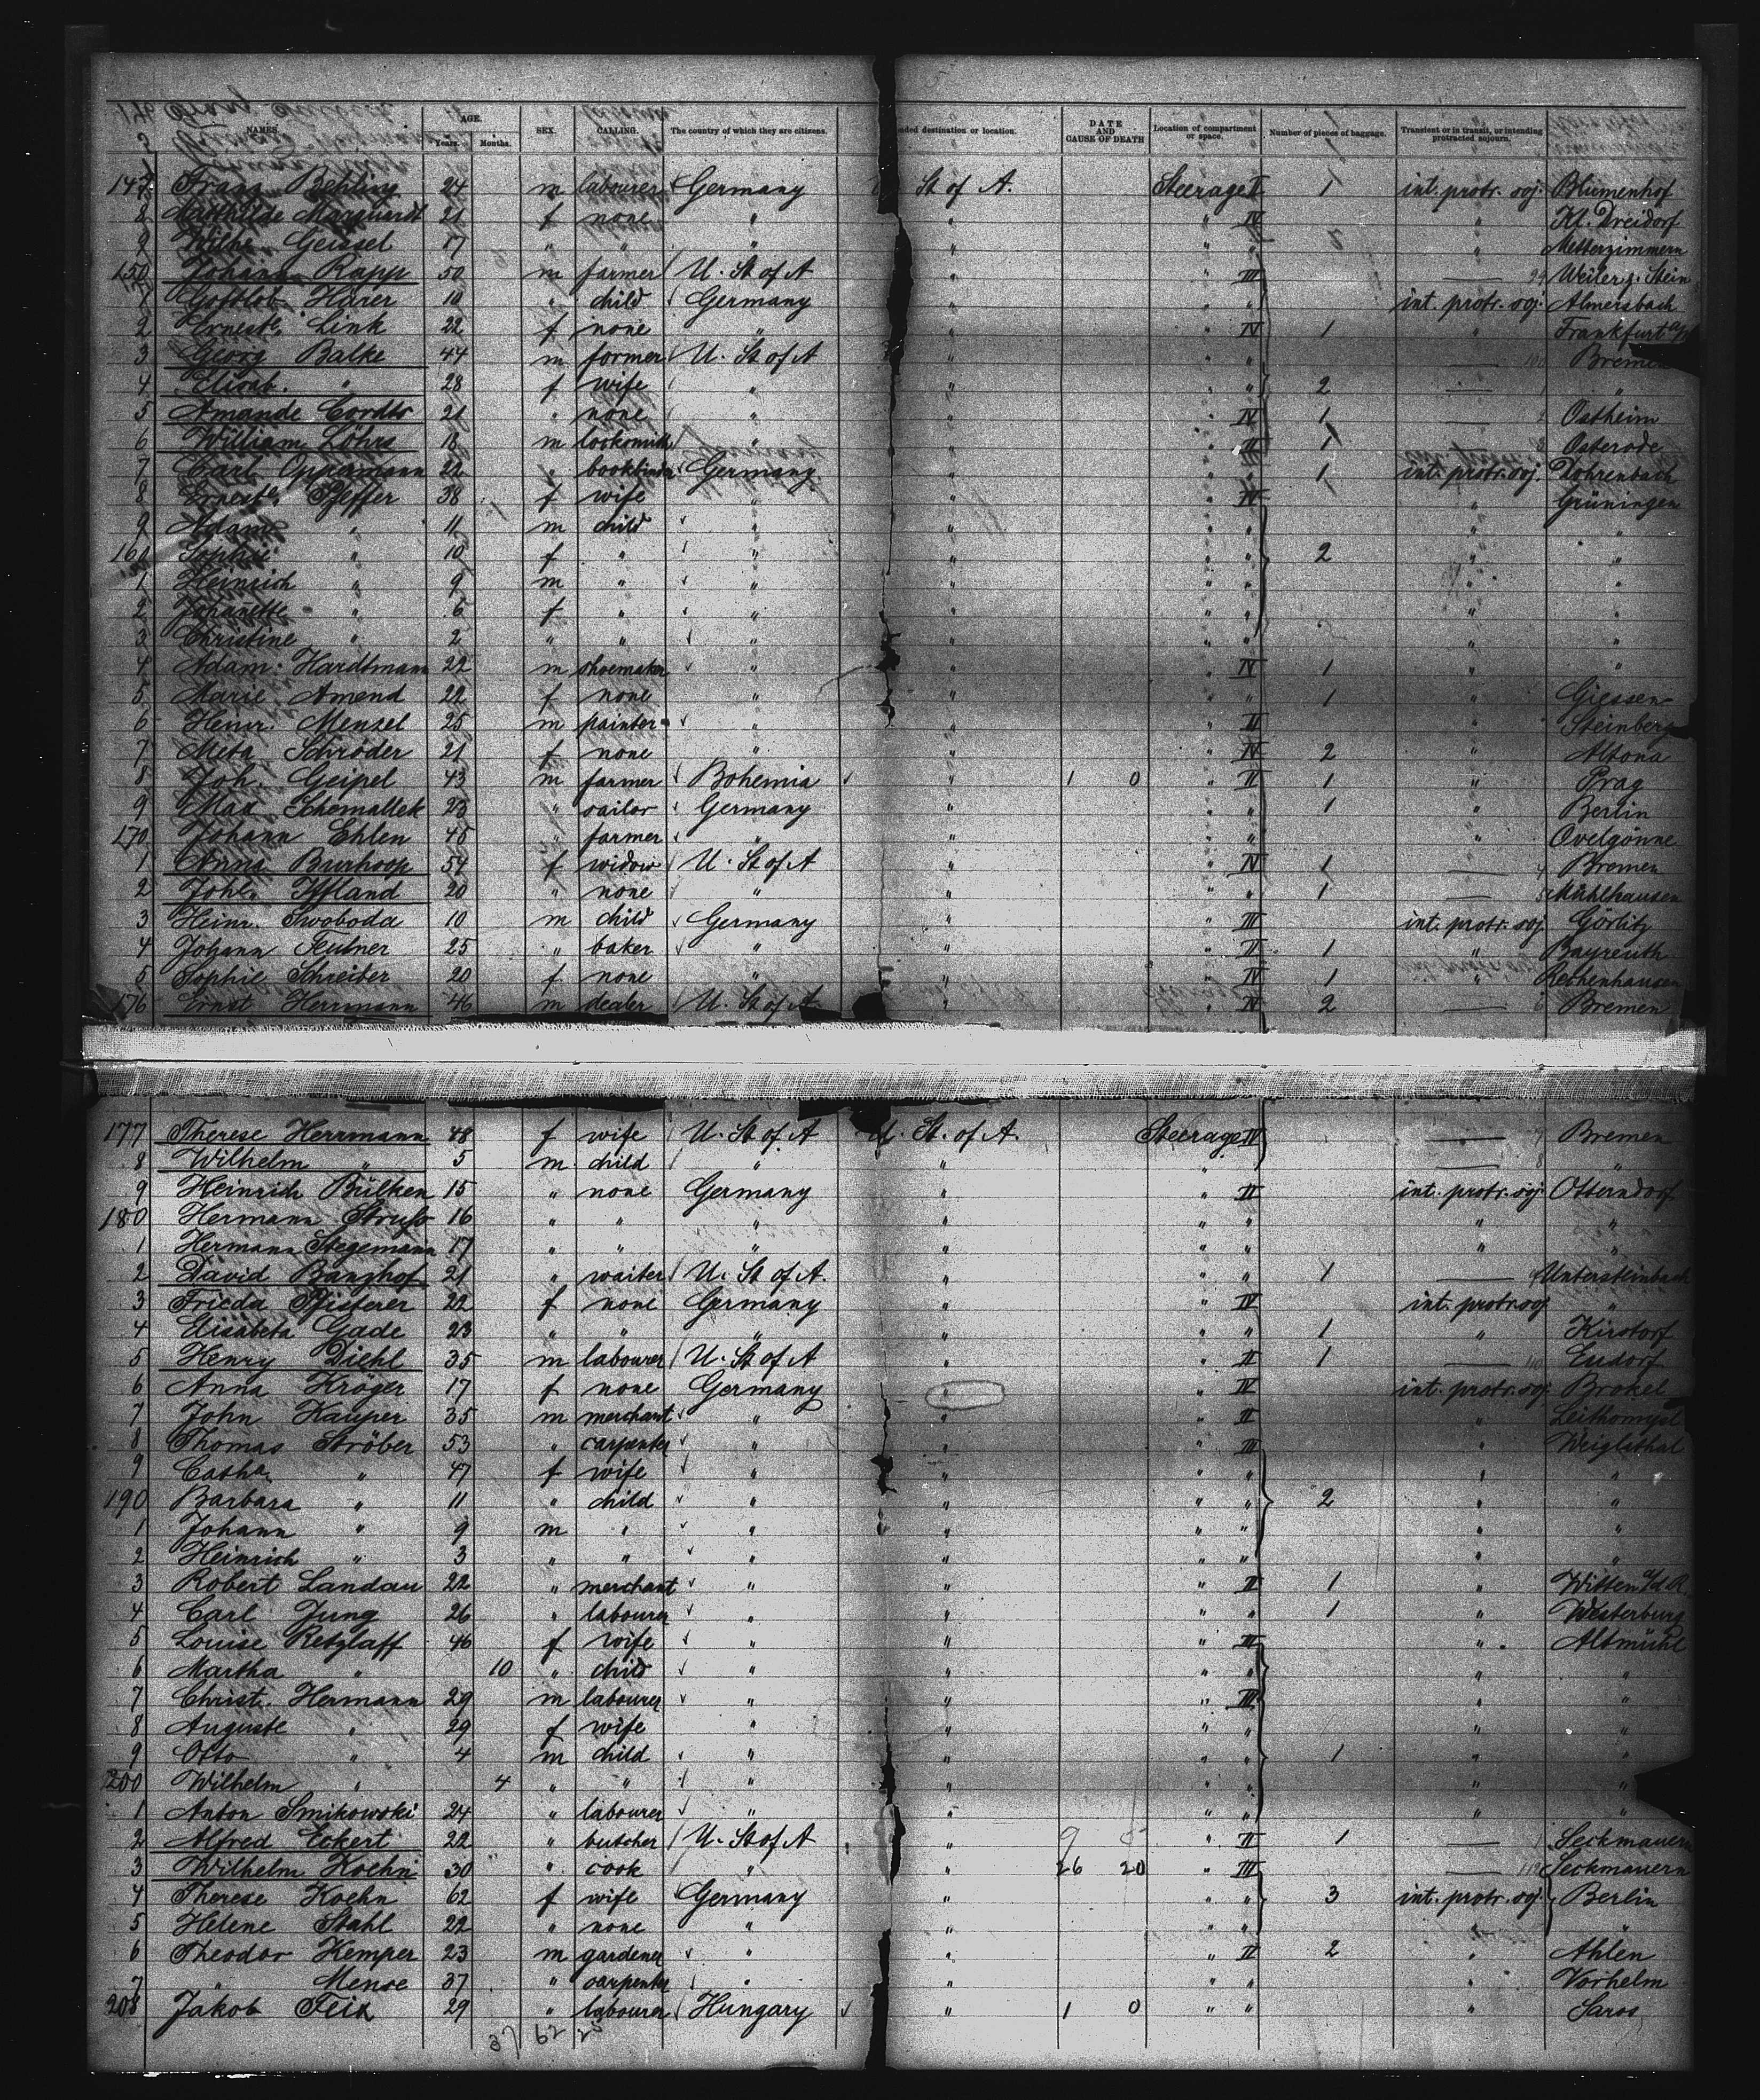 NAMES. AGE. Years. Months. SEX. CALLING. The country of which they are citizens. nded destination or location. DATE AND CAUSE OF DEATH Location of compartment or space. Number of pieces of baggage. Transient or in transit, or intending protracted sojourn.
147 Franz Behling 24 m labourer Germany St of A. Steerage II 1 int. protr. soj. Blumenhof
8 Mathilde Marquardt 21 f none " " " IV " Kl. Dreidorf
9 Wilhe. Geissel 17 " " " " " " " Metterzimmern
150 Johann Rapp 50 m farmer U. St of A " " III — 99 Weiler z. Stein
1 Gottlob Härer 10 " child Germany " " " int. protr. soj. Almersbach
2 Ernest. Link 22 f none " " " IV 1 " Frankfurt a/
3 Georg Balke 44 m farmer U. St of A " " " — 100 Bremen
4 Elisab. " 28 f wife " " " " 2 — 1 "
5 Amande Cordts 21 " none " " " IV 1 — 2 Ostheim
6 William Löhrs 18 m locksmith " " " II 1 — 3 Osterode
7 Carl Oppermann 22 " bookbinder Germany " " " 1 int. protr. soj. Dohrenbach
8 Erneste Pfeffer 38 f wife " " " IV " Grüningen
9 Adam " 11 m child " " " " " "
160 Sophie " 10 f " " " " " 2 " "
1 Heinrich " 9 m " " " " " " "
2 Johanette " 6 f " " " " " " "
3 Christine " 2 " " " " " " " "
4 Adam Hardtmann 22 m shoemaker " " " IV 1 " "
5 Marie Amend 22 f none " " " " 1 " Giessen
6 Heinr. Mensel 25 m painter " " " II " Steinberg
7 Meta Schröder 21 f none " " " IV 2 " Altona
8 Joh. Geipel 43 m farmer Bohemia " 1 0 " II 1 " Prag
9 Max Schemallek 23 " sailor Germany " " " 1 " Berlin
170 Johann Ehlen 45 " farmer " " " " " Ovelgönne
1 Anna Burhoop 54 f widow U. St of A " " IV 1 — 4 Bremen
2 Johe. Iffland 20 " none " " " " 1 — 5 Mühlhausen
3 Heinr. Swoboda 10 m child Germany " " III int. protr. soj. Görlitz
4 Johann Teubner 25 " baker " " " II 1 " Bayreuth
5 Sophie Schreiber 20 f none " " " IV 1 " Rechenhausen
176 Ernst Herrmann 46 m dealer U. St of A " " IV 2 — 6 Bremen
177 Therese Herrmann 48 f wife U. St of A U. St. of A. Steerage IV — 7 Bremen
8 Wilhelm " 5 m child " " " — 8 "
9 Heinrich Bülken 15 " none Germany " " II int. protr. soj. Otterndorf
180 Hermann Struss 16 " " " " " " " "
1 Hermann Stegemann 17 " " " " " " " "
2 David Banzhof 21 " waiter U. St of A. " " " 1 — 9 Untersteinbach
3 Frieda Pfisterer 22 f none Germany " " IV int. protr. soj. "
4 Elisabeta Gade 23 " " " " " " 1 " Kirstorf
5 Henry Diehl 35 m labourer U. St of A " " II 1 — 110 Eudorf
6 Anna Kröger 17 f none Germany " " IV int. protr. soj. Brokel
7 John Kauper 35 m merchant " " " II " Leithomysl
8 Thomas Ströber 53 " carpenter " " " III " Weiglsthal
9 Catha. " 47 f wife " " " " " "
190 Barbara " 11 " child " " " " 2 " "
1 Johann " 9 m " " " " " " "
2 Heinrich " 3 " " " " " " " "
3 Robert Landau 22 " merchant " " " II 1 " Witten a/d R.
4 Carl Jung 26 " labourer " " " " 1 " Westerburg
5 Louise Retzlaff 46 f wife " " " III " Altmühl
6 Martha " 10 " child " " " " " "
7 Christ. Hermann 29 m labourer " " " III " "
8 Auguste " 29 f wife " " " " " "
9 Otto " 4 m child " " " " 1 " "
200 Wilhelm " 4 " " " " " " " "
1 Anton Smikowski 24 " labourer " " " " " "
2 Alfred Eckert 22 " butcher U. St of A " 9 5 " II 1 — 1 Seckmauern
3 Wilhelm Koehn 30 " cook " " 26 20 " III — 112 Seckmauern
4 Therese Koehn 62 f wife Germany " " " 3 int. protr. soj. Berlin
5 Helene Stahl 22 " none " " " " "
6 Theodor Kemper 23 m gardener " " " II 2 " Ahlen
7 " Mense 37 " carpenter " " " " " Vorhelm
208 Jakob Feix 29 " labourer Hungary " 1 0 " " " Saros
37 62 25